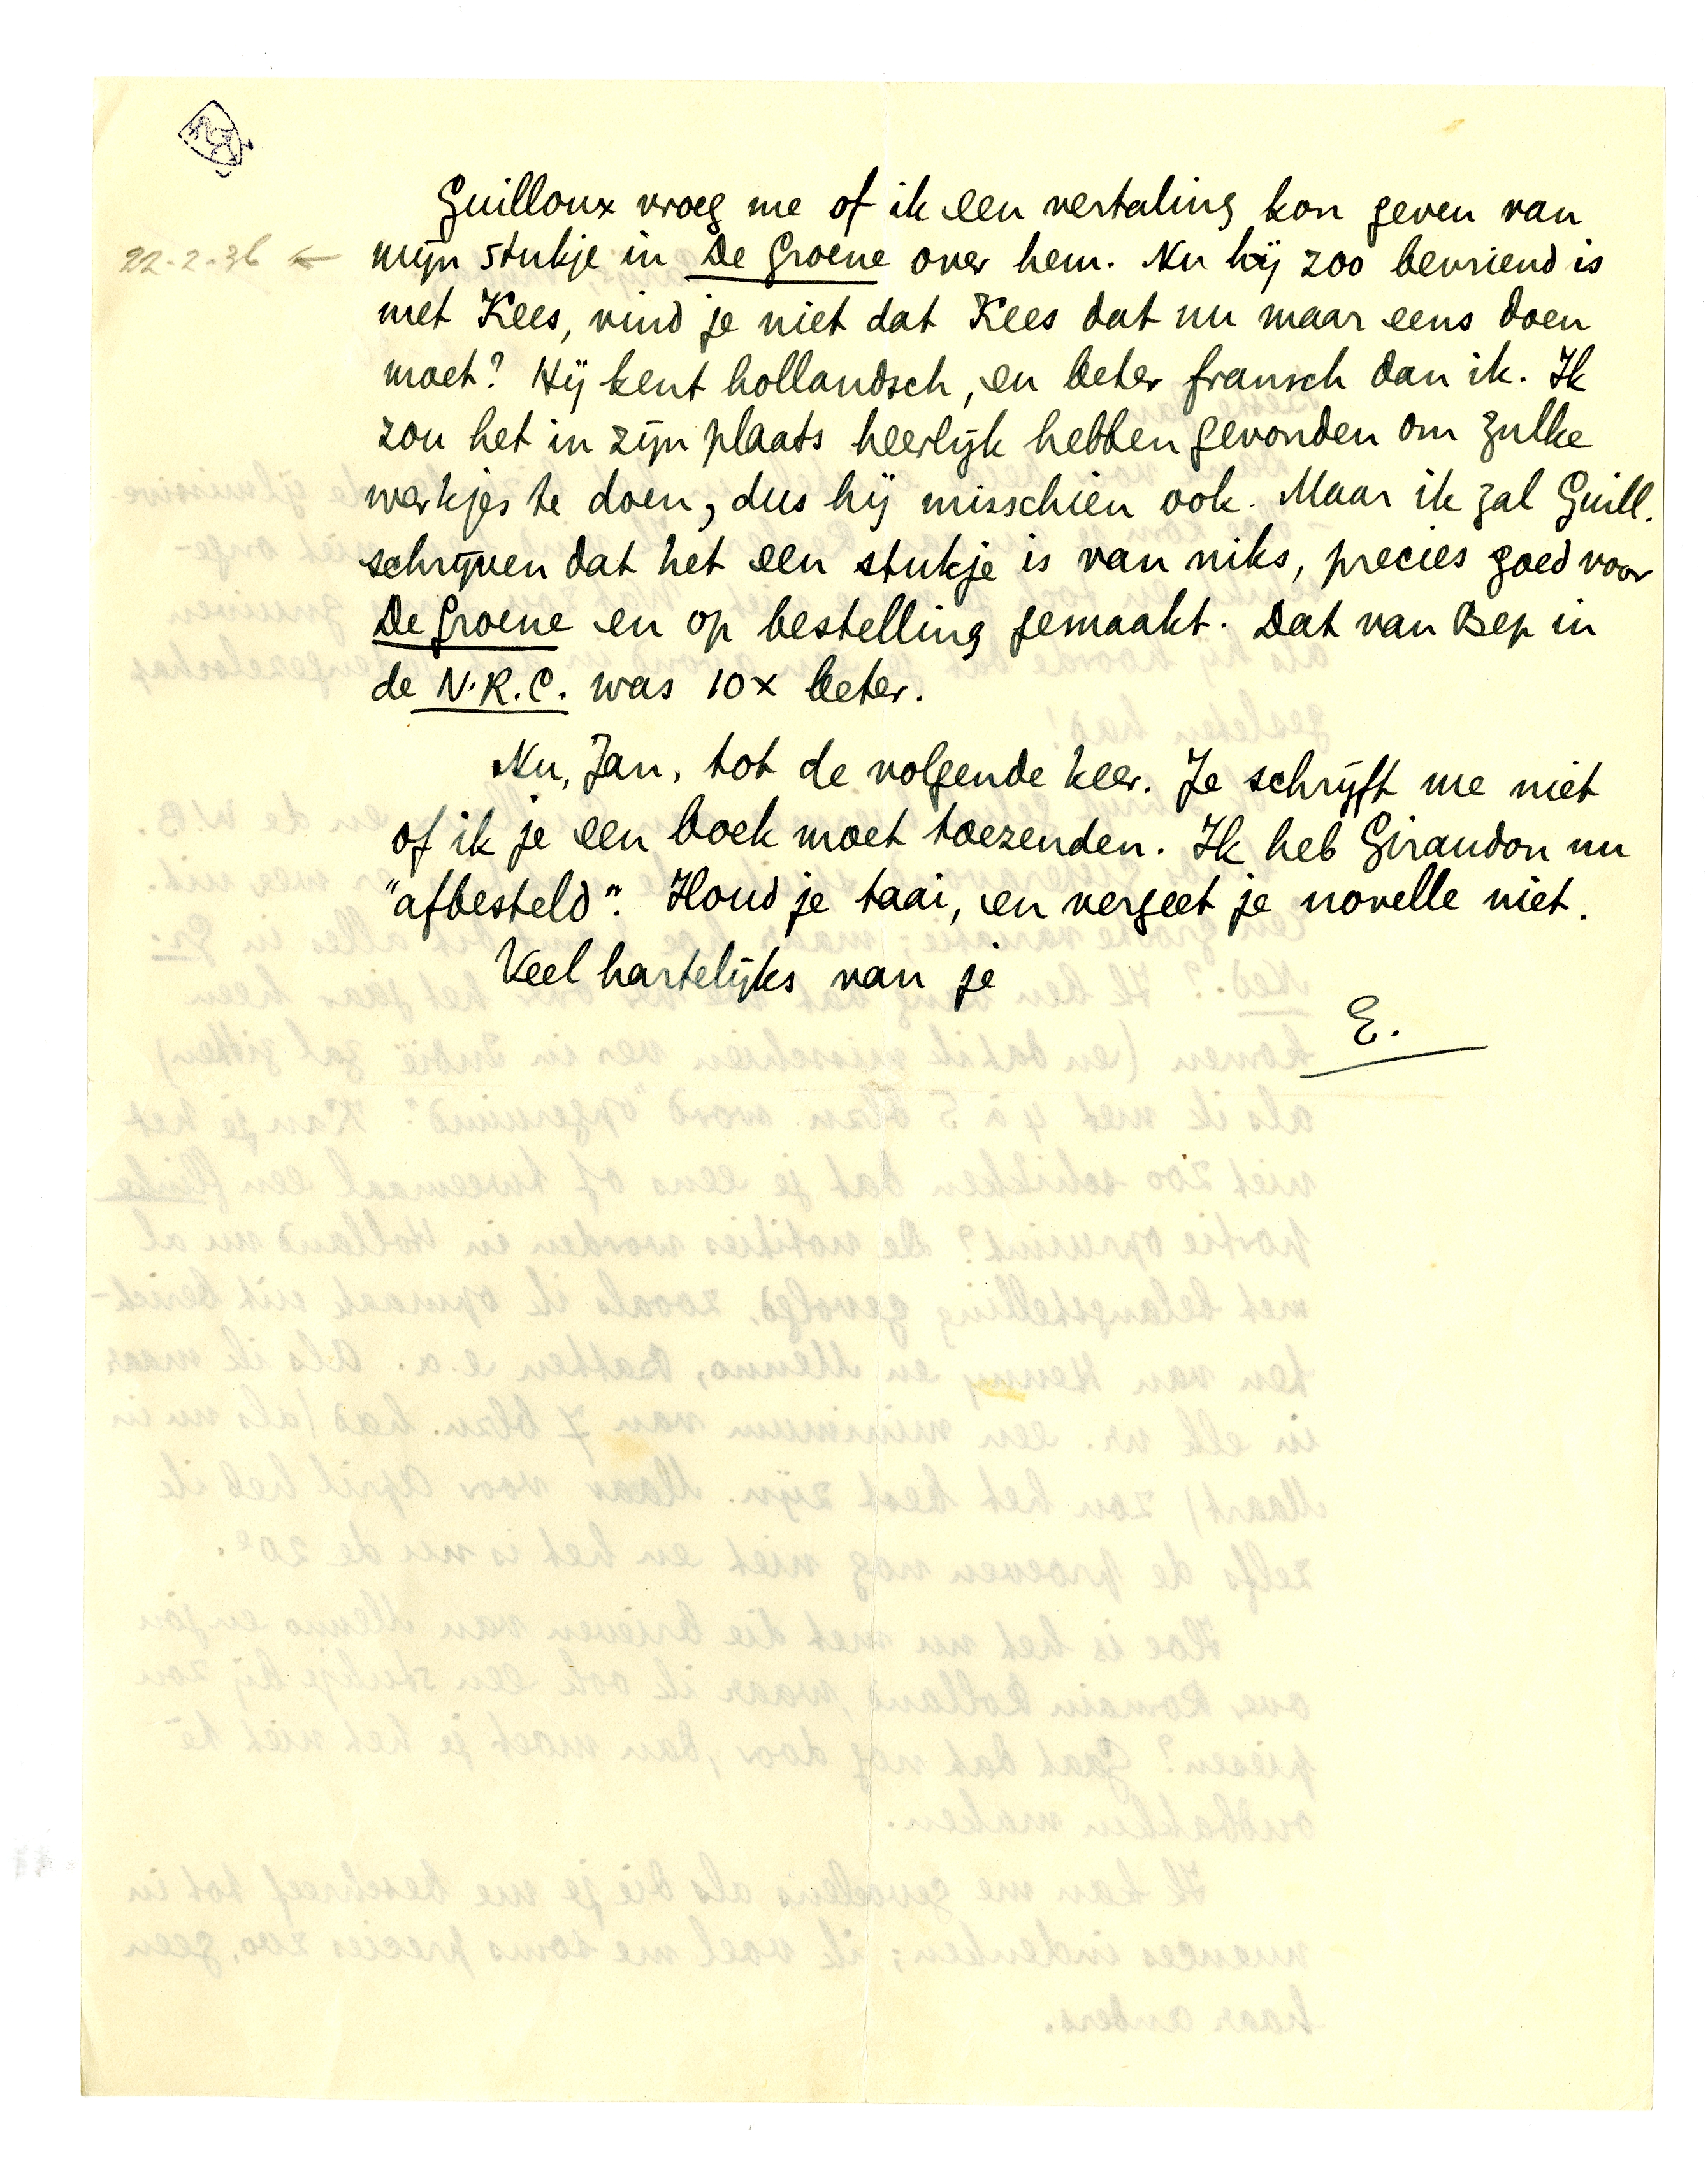 Guilloux vroeg me of ik een vertaling kon geven van
22-2-36 ← mijn stukje in De Groene over hem. Nu hij zoo bevriend is
met Kees, vind je niet dat Kees dat nu maar eens doen
moet? Hij kent hollandsch, en beter fransch dan ik. Ik
zou het in zijn plaats heerlijk hebben gevonden om zulke
werkjes te doen, dus hij misschien ook. Maar ik zal Guill.
schrijven dat het een stukje is van niks, precies goed voor
De Groene en op bestelling gemaakt. Dat van Bep in
de N.R.C. was 10x beter.
Nu, Jan, tot de volgende keer. Je schrijft me niet
of ik je een boek moet toezenden. Ik heb Giraudon nu
"afbesteld". Houd je taai, en vergeet je novelle niet.
Veel hartelijks van je
E.